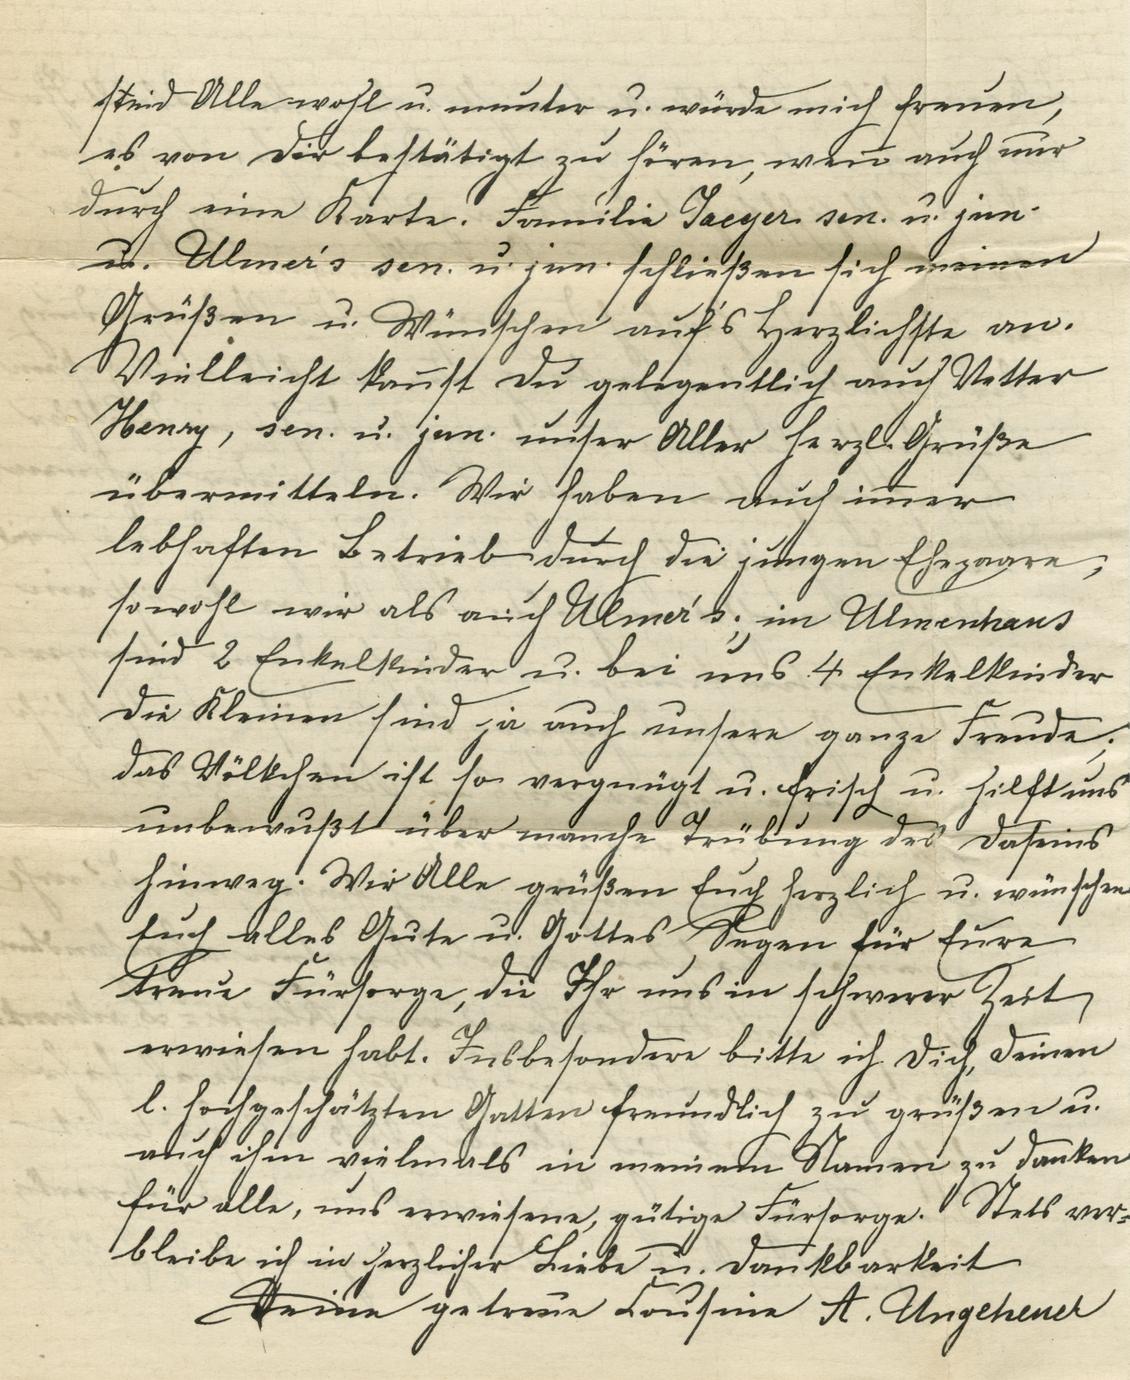 seid Alle wohl u. munter u. würde mich freuen,
es von Dir bestätigt zu hören, weñ auch nur
durch eine Karte. Familie Jaeger sen. u. jun.
u. Ulmer's sen. u. jun. schließen sich meinen
Grüßen u. Wünschen auf's Herzlichste an.
Vielleicht kañst Du gelegentlich auch Vetter
Henry, sen. u. jun. unser Aller herzl. Grüße
übermitteln. Wir haben auch im̃er
lebhaften Betrieb durch die jungen Ehepaare,
sowohl wir als auch Ulmer's; im Ulmenhaus
sind 2 Enkelkinder u. bei uns 4 Enkelkinder
die Kleinen sind ja auch unsere ganze Freude;
das Völkchen ist so vergnügt u. frisch u. hilft uns
unbewußt über manche Trübung des Daseins
hinweg. Wir Alle grüßen Euch herzlich u. wünschen
Euch alles Gute u. Gottes Segen für Eure
treue Fürsorge, die Ihr uns in schwerer Zeit
erwiesen habt. Insbesondere bitte ich Dich, Deinen
l. hochgeschätzten Gatten freundlich zu grüßen u.
auch ihm vielmals in meinem Namen zu danken
für alle, uns erwiesene, gütige Fürsorge. Stets ver-
bleibe ich in herzlicher Liebe u. Dankbarkeit
Deine getreue Cousine A. Ungeheuer